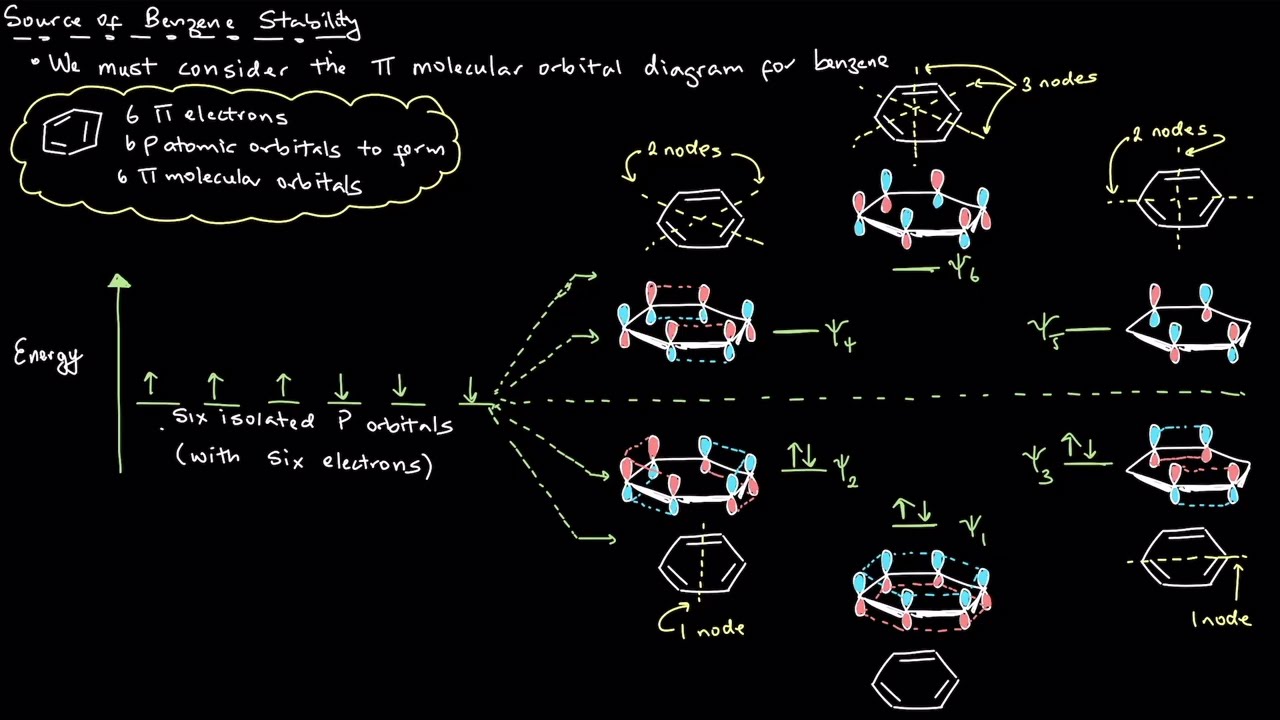 Source of Benzene Stability
• We must consider the π molecular orbital diagram for benzene
6 π electrons
6 P atomic orbitals to form
6 π molecular orbitals
3 nodes
2 nodes
2 nodes
ψ6
Energy
ψ4
ψ5
Six isolated P orbitals
(with six electrons)
ψ2
ψ3
ψ1
1 node
1 node